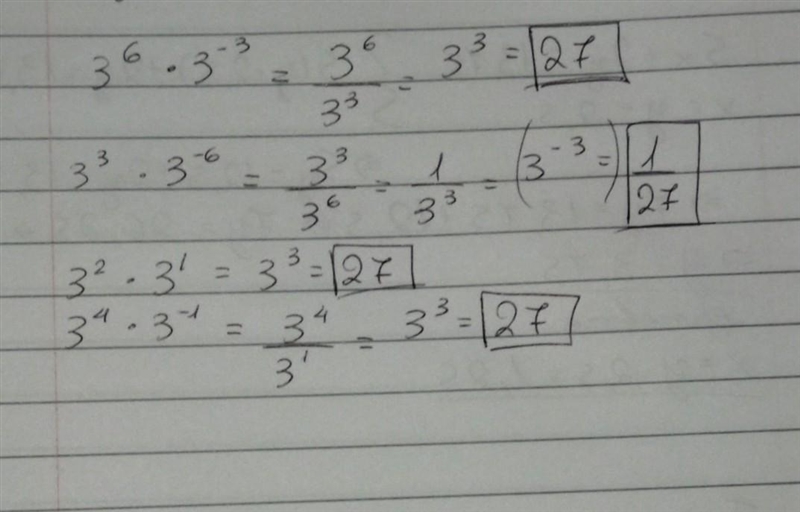 3⁶ · 3⁻³ = 3⁶/3³ = 3³ = 27
3³ · 3⁻⁶ = 3³/3⁶ = 1/3³ = (3⁻³ =) 1/27
3² · 3¹ = 3³ = 27
3⁴ · 3⁻¹ = 3⁴/3¹ = 3³ = 27